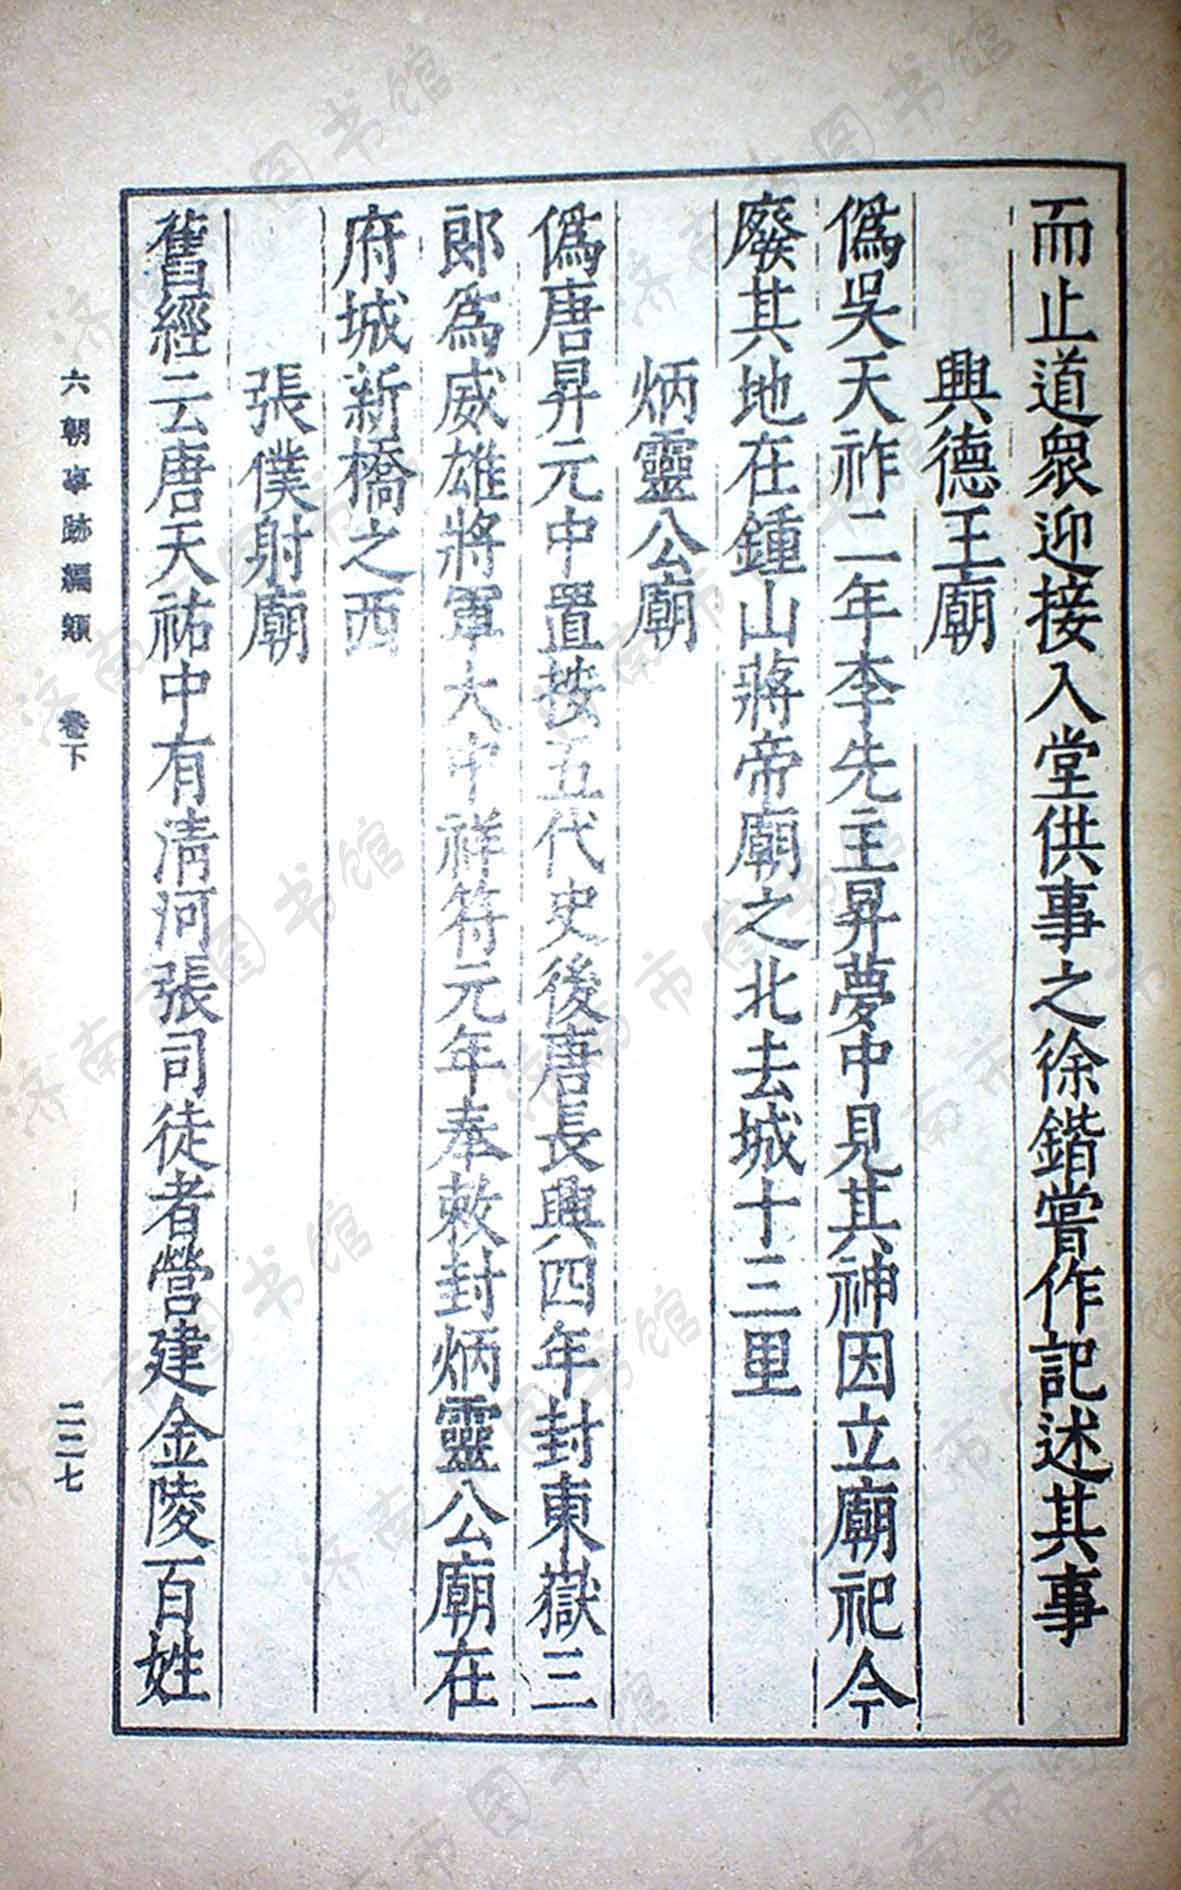 而止道衆迎接入堂供事之徐鍇嘗作記述其事
興德王廟
僞吳天祚二年李先主昇夢中見其神因立廟祀今
廢其地在鍾山蔣帝廟之北去城十三里
炳靈公廟
僞唐昇元中置按五代史後唐長興四年封東嶽三
郎爲威雄將軍大中祥符元年奉敕封炳靈公廟在
府城新橋之西
張僕射廟
舊經云唐天祐中有清河張司徒者營建金陵百姓
六朝事跡編類 卷下
二二七
济南市图书馆